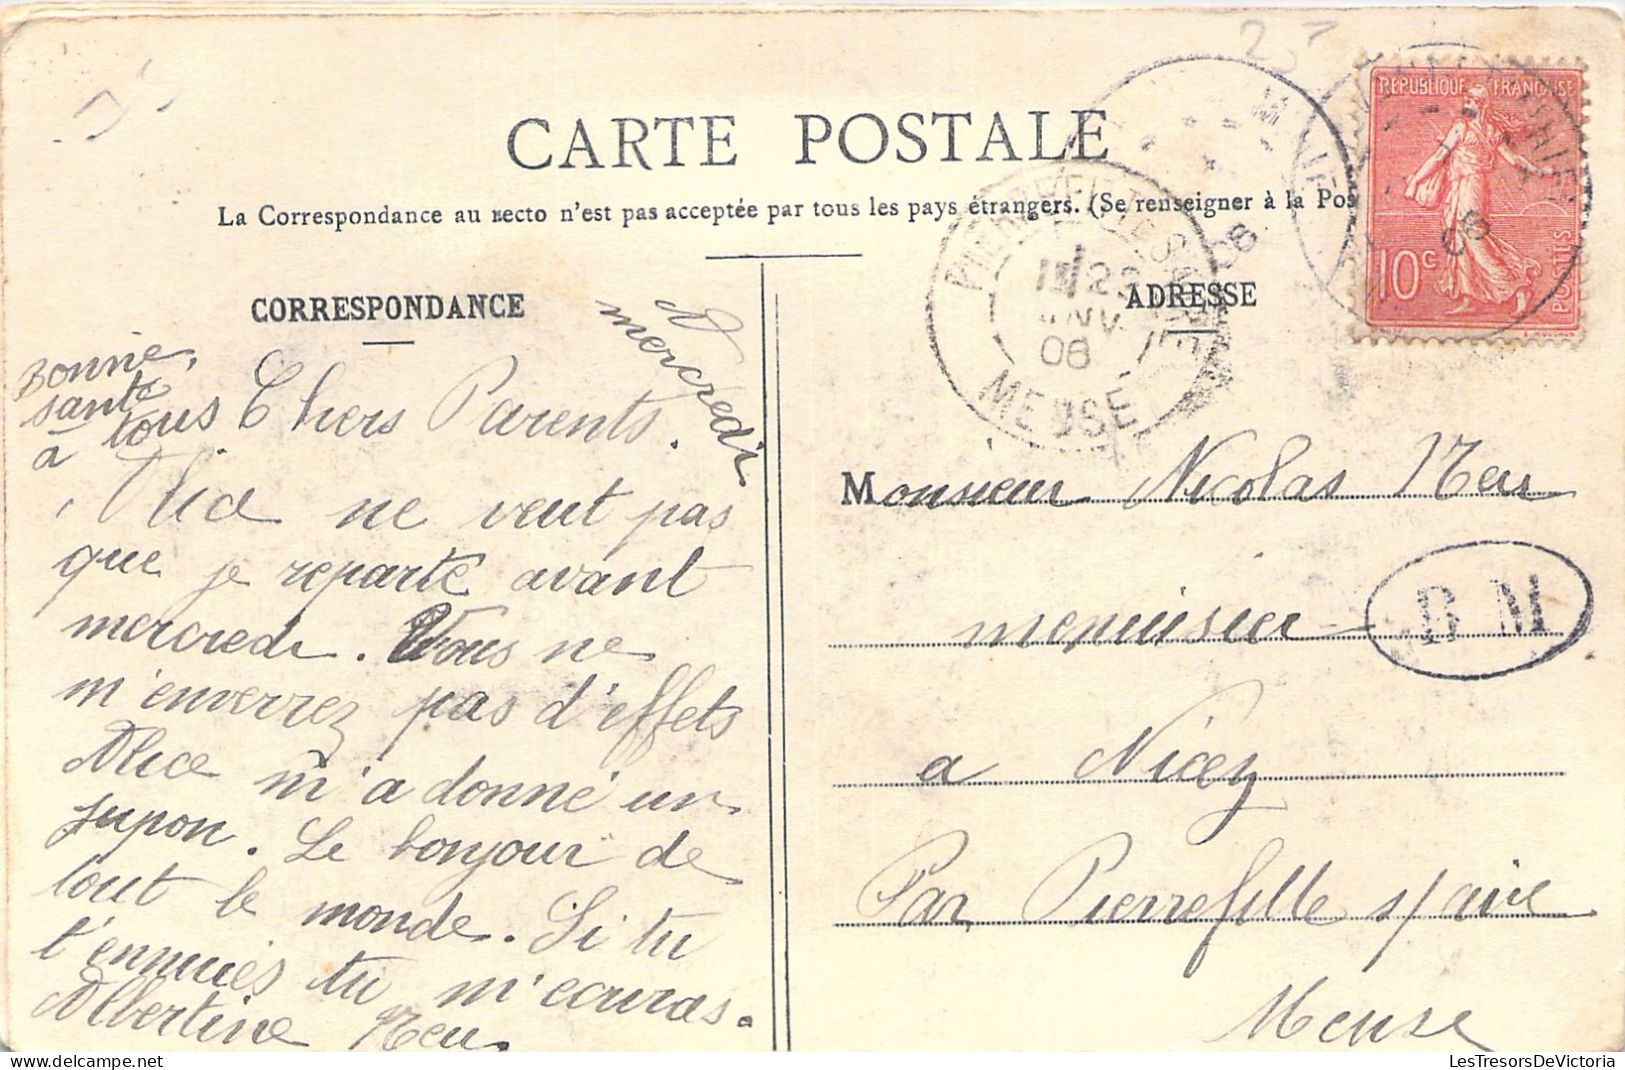 CARTE POSTALE
La Correspondance au recto n'est pas acceptée par tous les pays étrangers. (Se renseigner à la Pos
CORRESPONDANCE
mercredi
Bonne
santé
à tous
Chers Parents.
Alice ne veut pas
que je reparte avant
mercredi. Vous ne
m'enverrez pas d'effets
Alice m'a donné un
jupon. Le bonjour de
tout le monde. Si tu
t'ennuies tu m'ecriras.
Albertine Neu.
REPUBLIQUE FRANÇAISE
10c
POSTES
08
08
22
08
MEUSE
ADRESSE
Monsieur Nicolas Neu
menuisier
BM
a Nicey
Par Pierrefitte s/aire
Meuse
LesTresorsDeVictoria